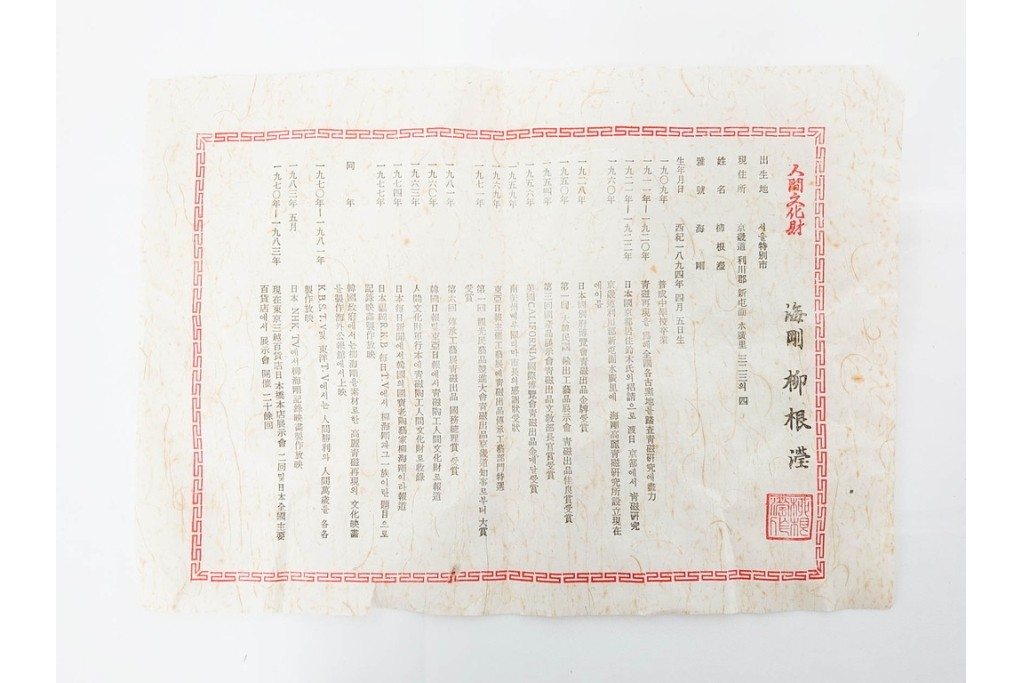 人間文化財
海剛 柳根瀅
出生地 서울特別市
現住所 京畿道 利川郡 新屯面 水廣里 三二三의 四
姓名 柳根瀅
雅號 海剛
生年月日 西紀一八九四年 四月 五日生
一九〇九年 普成中學校卒業
一九一一年―一九二〇年 青磁再現을 爲해 全國各古窯地를 踏査青磁研究에 盡力
一九二一年―一九二二年 日本國京都居住鈴木氏의 招請으로 渡日 京都에서 青磁研究
一九六〇年 京畿道利川郡新屯面水廣里에 海剛高麗青磁研究所設立現在에이름
一九二八年 日本國別府博覽會青磁出品金牌受賞
一九五〇年 第一回 大韓民國 輸出工藝品展示會 青磁出品佳良賞受賞
一九五四年 第三回國產品展示會青磁出品文教部長官賞受賞
一九五六年 美國CALIFORNIA國際博覽會青磁出品金메달受賞
一九五九年 南美 市長의感謝狀受狀
一九六九年 東亞日報主催工藝展에青磁出品傳承工藝部門特選
一九七一年 第一回 觀光民藝品競進大會青磁出品京畿道知事로부터 大賞受賞
一九八一年 第六回 傳承工藝展青磁出品 國務總理賞 受賞
一九六〇年 韓國日報및東亞日報에서青磁陶工人間文化財로報道
一九六三年 人間文化財 本에青磁陶工人間文化財로收錄
一九七四年 日本每日新聞에서韓國의國寶老陶藝家柳海剛이라報道
一九七七年 日本福岡 R.K.B 每日T.V에서 柳海剛과그一族이란 題目으로記錄映畫製作放映
同年 韓國政府에서는柳海剛을素材로한 高麗青磁再現의 文化映畫를製作海外公報館에서上映
一九七〇年―一九八一年 K.B.S.T.V및 東洋T.V에서는 人間勝利와 人間萬歲를 各各製作放映
一九八三年 五月 日本 NHK TV에서柳海剛記錄映畫製作放映
一九七〇年―一九八三年 現在東京三越百貨店日本橋本店展示會 二回및日本全國主要百貨店에서 展示會 開催 二十餘回